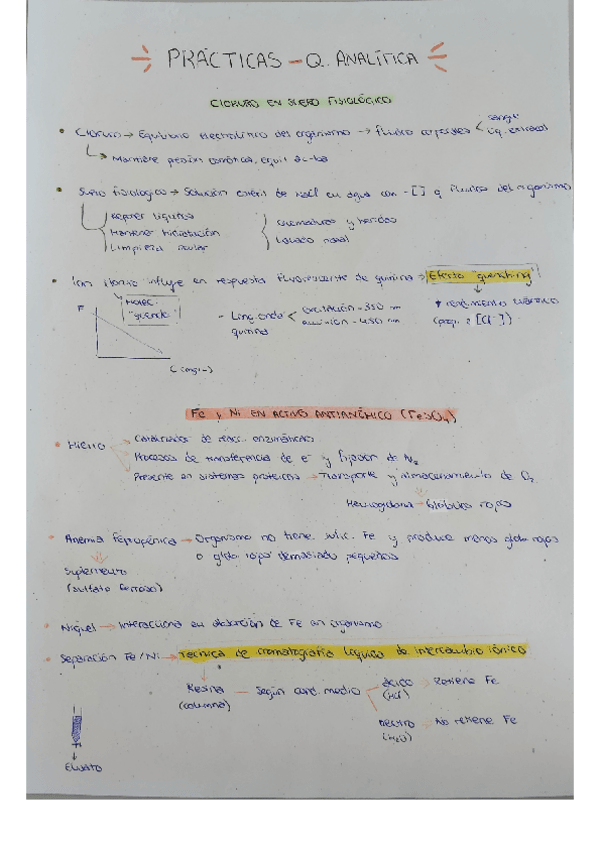 PRÁCTICAS - Q. ANALÍTICA
CLORURO EN SUERO FISIOLÓGICO
Cloruro → Equilibrio electrolítico del organismo → fluidos corporales < sangre
líq. extracel
Mantiene presión osmótica, equil ác-ba
Suero fisiológico → Solución estéril de NaCl en agua con ~[] q fluidos del organismo
Reponer líquidos
Mantener hidratación
Limpieza ocular
Quemaduras y heridas
Lavado nasal
Ion cloruro influye en respuesta fluorescente de quinina → Efecto "quenching"
rendimiento cuántico
(prop. a [Cl⁻])
F
Molec.
"quencher"
Long. onda < excitación - 350 nm
quinina emisión - 450 nm
Fe y Ni EN ACTIVO ANTIANÉMICO (FeSO₄)
Hierro → Catalizador de reacc. enzimáticas
Procesos de transferencia de e⁻ y fijación de N₂
Presente en sistemas proteicos → Transporte y almacenamiento de O₂
Hemoglobina → Glóbulos rojos
Anemia ferropénica → Organismo no tiene sufic. Fe y produce menos glób. rojos
o glób. rojos demasiado pequeños
Suplemento
(sulfato ferroso)
Níquel → Interacciona en absorción de Fe en organismo
Separación Fe/Ni → Técnica de cromatografía líquida de intercambio iónico
Resina — Según cond. medio
(columna)
ácido → Retiene Fe
(HCl)
neutro → No retiene Fe
(H₂O)
Eluato